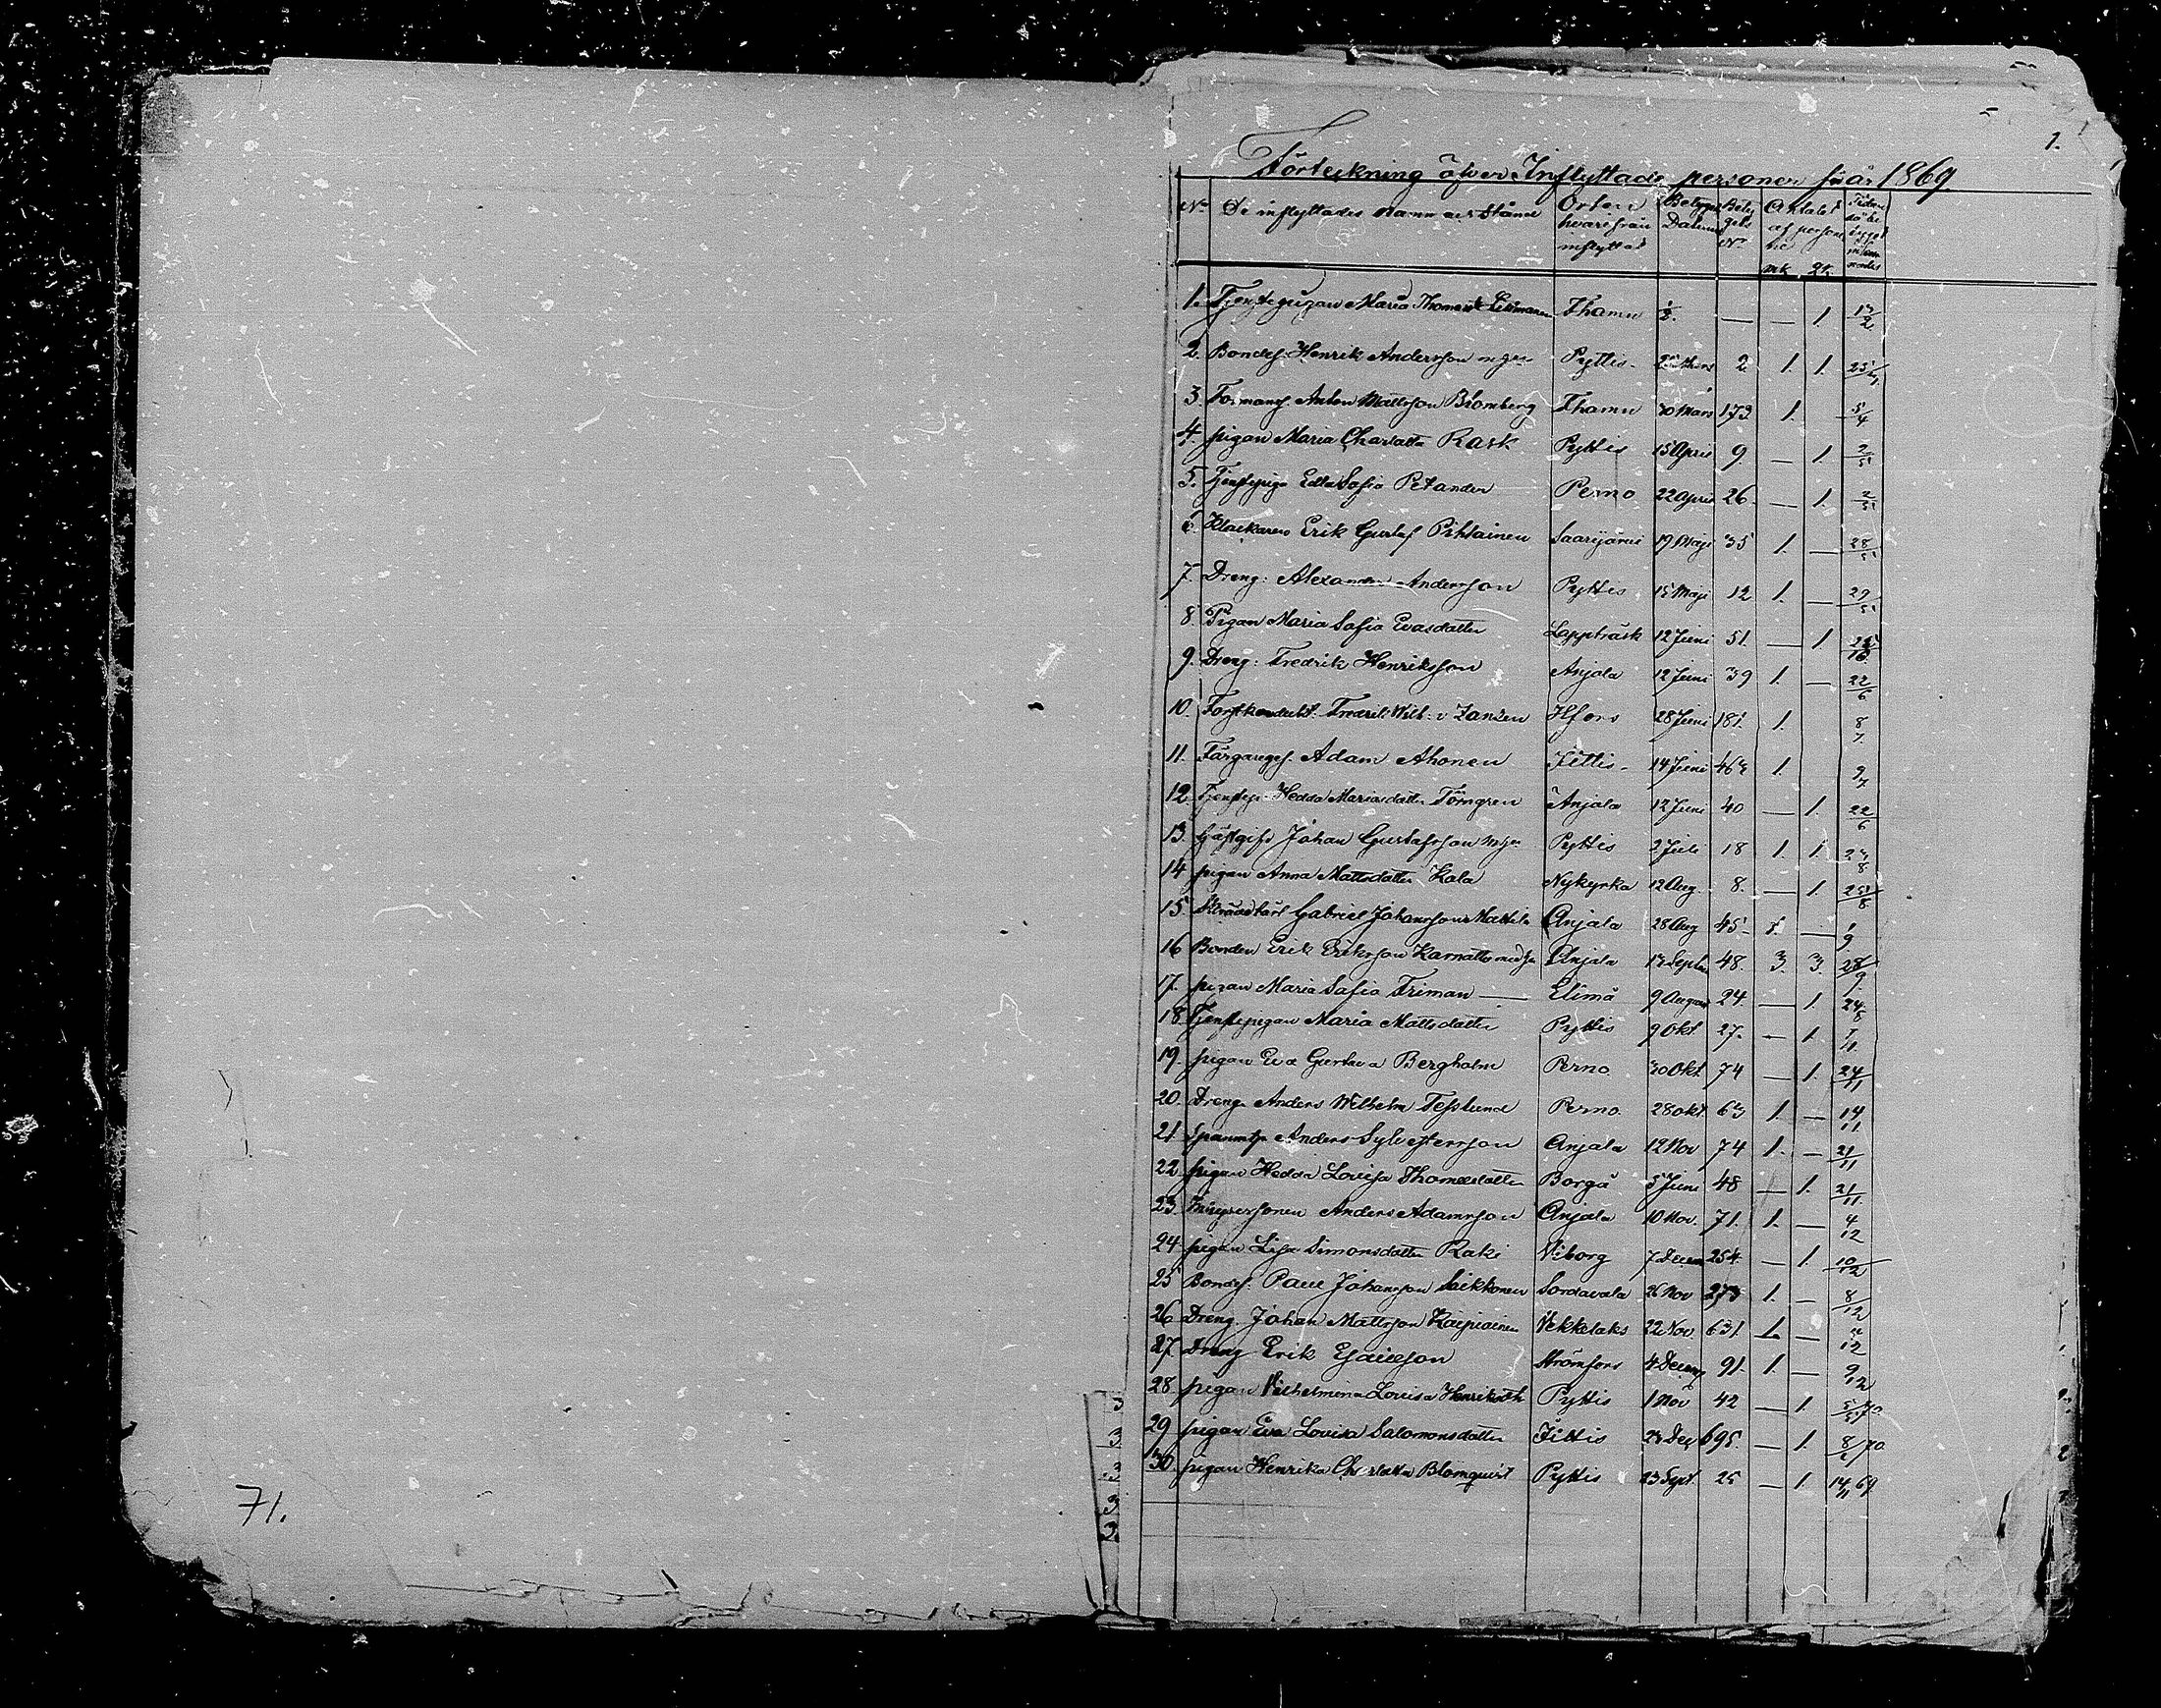 1.
Förteckning öfver Inflyttade personer för år 1869
No De inflyttades namn och stånd Orten hvarifrån inflyttat Betygets Datum Betygets No Antalet af personer mk qk Tiden då betyget inlemnades
1. Tjenstepigan Maria Thomasdr Fhamn 1/2. — — 1. 17/2
2. Bondes. Henrik Andersson Pyttis 2 1. 1. 25/4
3. Anton Mattsson Blomberg Fhamn 30 Mars 173 1. 5/4
4. pigan Maria Charlotta Rask Pyttis 15 April 9. — 1. 2/5
5. Tjenstepiga Edla Sofia Petander Perno 22 April 26. — 1. 2/5
6. Klockaren Erik Gustaf Pihlainen Saarijärvi 19 Maji 35 1. — 28/5
7. Dreng: Alexander Andersson Pyttis 15 Maji 12 1. — 29/5
8. Pigan Maria Sofia Evasdotter Lappträsk 12 Juni 51. — 1. 25/10
9. Dreng: Fredrik Henriksson Anjala 12 Juni 39 1. — 22/6
10. Forstkondukt. Fredrik Wilh: v Zansen Hfors 28 Juni 181. 1. 8/7
11. Färgareges. Adam Ahonen Iittis 14 Juni 463 1. 9/7
12. Tjenstep. Hedda Mariasdotter Törngren Anjala 12 Juni 40 — 1. 22/6
13. Gästgifv Johan Gustafsson Pyttis 2 Juli 18 1. 1. 2/8
14 pigan Anna Mattsdotter Kala Nykyrka 12 Aug. 8. — 1. 25/8
15. Gabriel Johansson Mattila Anjala 28 Aug 45 1. — 1/9
16 Bonden Erik Eriksson Karnatto Anjala 13 Septem 48. 3. 3. 28/9
17. pigan Maria Sofia Friman — Elimä 9 August 24. — 1. 24/8
18 Tjenstepigan Maria Mattsdotter Pyttis 9 Okt 27. — 1. 7/11.
19. pigan Eva Gustava Bergholm Perno 30 Okt. 74 — 1. 24/11
20. Dreng. Anders Wilhelm Tesslund Perno. 28 okt 63 1. — 14/11
21. Anders Sylvestersson Anjala 12 Nov 74 1. — 21/11
22. pigan Hedda Lovisa Thomasdotter Borgå 5 Juni 48 — 1. 21/11.
23. Anders Adamsson Anjala 10 Nov. 71. 1. — 4/12
24. pigan Lisa Simonsdotter Raki Viborg 7 Decem 254. — 1. 10/12
25 Bondes. Paul Johansson Saikkonen Sordavala 26 Nov 273 1. — 8/12
26 Dreng. Johan Mattsson Kaipiainen Vekkelaks 22 Nov. 631. 1. —
27. Dreng Erik Esaiesson Strömfors 4 Decemb 91. 1. — 9/12
28. pigan Vilhelmina Lovisa Henriksdtr Pyttis 1 Nov 42 — 1. 5/5 70.
29 pigan Eva Lovisa Salomonsdotter Iittis 23 Dec 695. — 1. 8/2 70
30. pigan Henrika Charlotta Blomquist Pyttis 23 Sept. 25 — 1. 14/11 69
71.